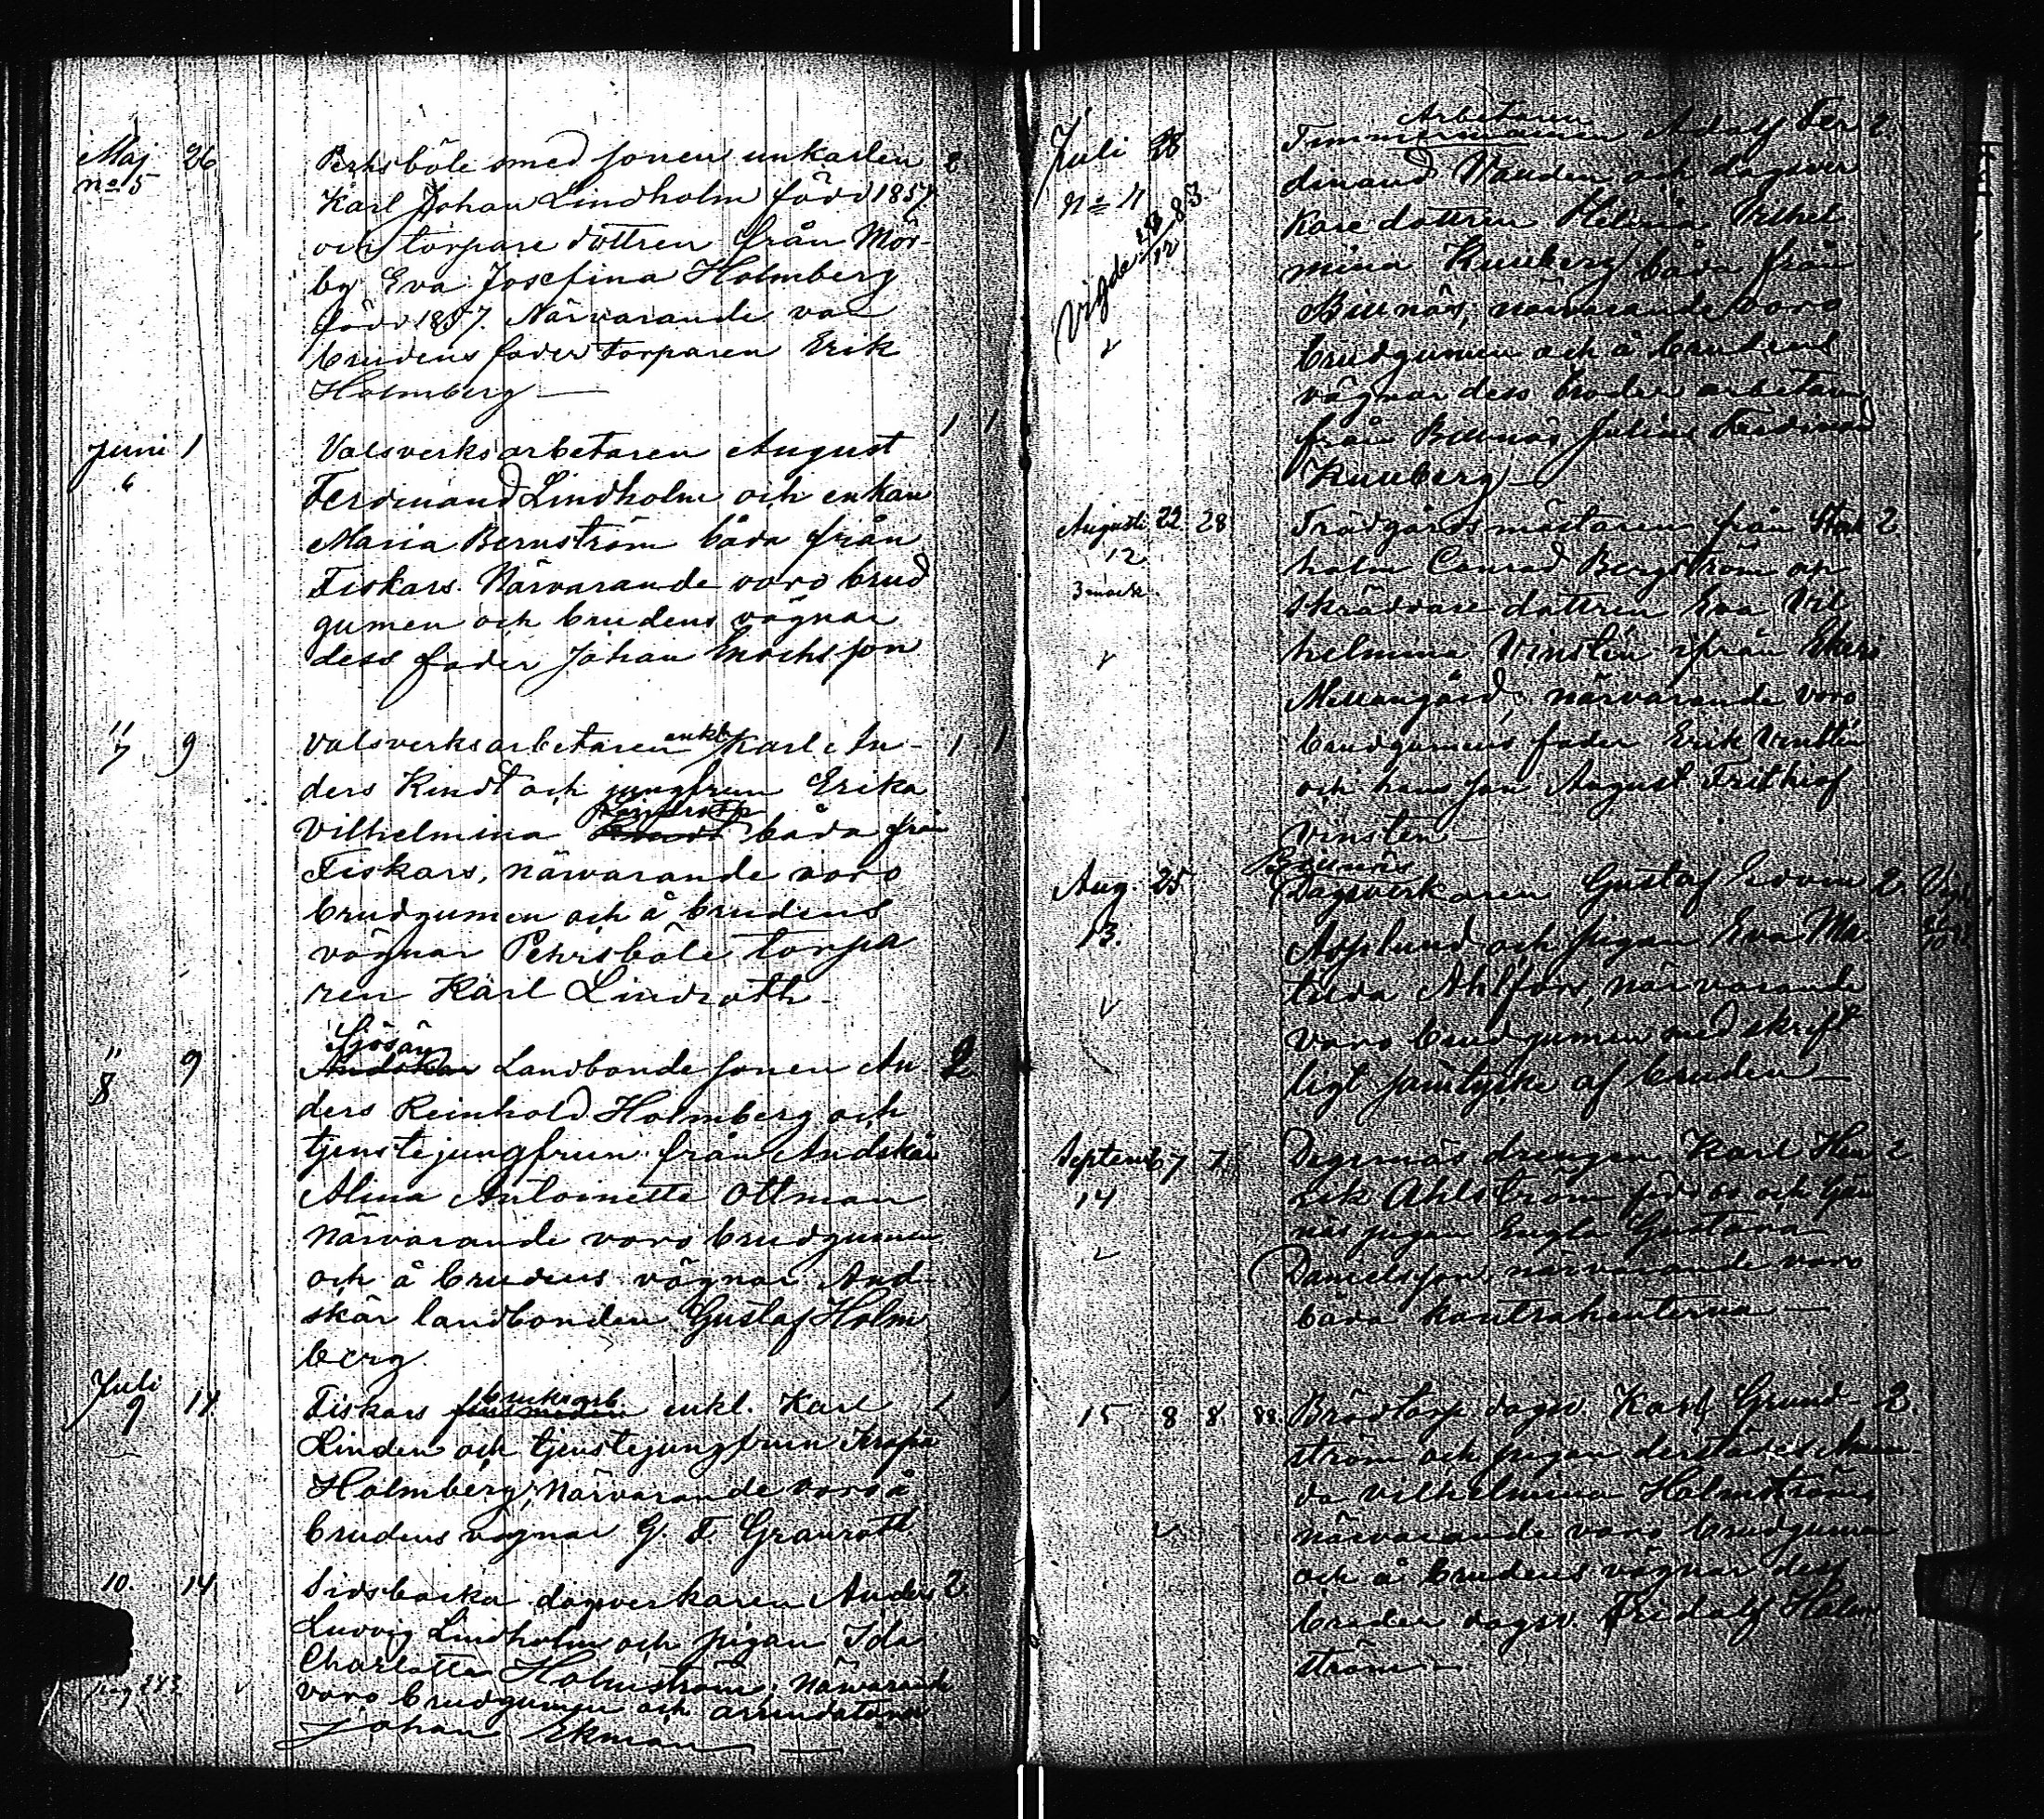 Maj 26 Perhsböle smed sonen unkarlen 2
no 5 Karl Johan Lindholm född 1857
och torpare dottren från Mör-
by Eva Josefina Holmberg
född 1857. Närvarande var
brudens fader torparen Erik
Holmberg —
Juni 1 Valsverksarbetaren August 1 1
6 Ferdinand Lindholm och enkan
Maria Bernström båda från
Fiskars. Närvarande voro brud
gumen och brudens vägnar
dess fader Johan Enochsson
" 9 Valsverksarbetaren enkl. Karl An- 1 1
7 ders Kindt och jungfrun Erika
Lindroth
Vilhelmina båda från
Fiskars, närvarande voro
brudgumen och å brudens
vägnar Pehrsböle torpa
ren Karl Lindroth.
Sjösän
" 9 Andskär Landbonde sonen An- 2
8 ders Reinhold Holmberg och
tjenstejungfrun från Andskär
Alina Antoinette Ottman
Närvarande voro brudgumen
och å brudens vägnar And-
skär landbonden Gustaf Holm
berg.
Juli bruksarb.
9 14 Fiskars finsmeden enkl. Karl 1 1
Linden och tjenstejungfrun
Holmberg, Närvarande voro å
brudens vägnar G. F. Granroth
10. 14 Sidsbacka dagsverkaren Anders 2
Ludvig Lindholm och pigan Ida
Charlotta Holmström; Närvarande
pag 243 voro brudgumen och
Johan Ekman —
Arbetaren
Juli 28 Timmermannen Adolf Fer 2
no 11 dinand Nauden och dagsver
Vigde 83. kare dottren Helena Vilhel
12 mina Kuuberg båda från
Billnäs, närvarande voro
brudgumen och å brudens
vägnar dess broder arbetaren
från Billnäs Julius Ferdinand
Kuuberg —
Augusti 22 28 Trädgårdsmästaren från 2
12 holm Conrad Bergström och
3 mark skräddare dottren Eva Vil
helmina Vinstén ifrån Ekeri
Mellangård; närvarande voro
brudgumens fader Erik Vinstén
och hans son August Frithiof
Vinstén —
Billnäs
Aug. 25 Dagsverkaren Gustaf Edvin 2 Vigde
13. Asplund och pigan Eva Ma-
tilda Ahlfors, närvarande
voro brudgumen med skrift
ligt samtycke af bruden —
Septemb 7 7 Degernäs drengen Karl Hen 2
14 rik Ahlström född 60 och
näs pigan Engla Gustava
Danielsson, närvarande voro
båda kontrahenterna —
15 8 8 88. Brödtorp dagsv. Karl Grund- 2
ström och pigan derstädes Aman-
da Vilhelmina Holmström
närvarande voro brudgumen
och å brudens vägnar dess
broder dagsv. Fridolf Holm
ström —